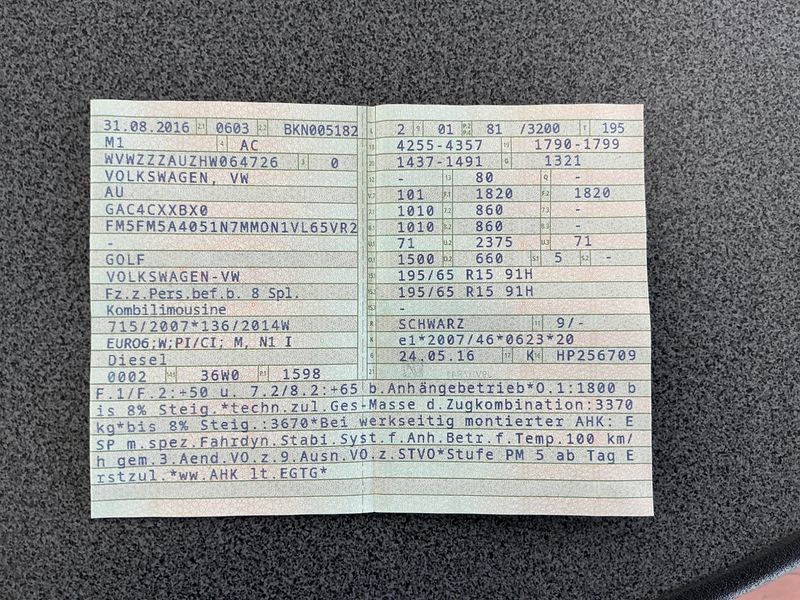 31.08.2016 2.1 0603 2.2 BKN005182
M1 4 AC
WVWZZZAUZHW064726 3 0
VOLKSWAGEN, VW
AU
GAC4CXXBX0
FM5FM5A4051N7MMON1VL65VR2
-
GOLF
VOLKSWAGEN-VW
Fz.z.Pers.bef.b. 8 Spl.
Kombilimousine
715/2007*136/2014W
EURO6;W;PI/CI; M, N1 I
Diesel
0002 14.1 36W0 P.1 1598
L 2 9 01 P.2 P.4 81 /3200 T 195
18 4255-4357 19 1790-1799
20 1437-1491 G 1321
12 - 13 80 Q -
V.7 101 F.1 1820 F.2 1820
7.1 1010 7.2 860 7.3 -
8.1 1010 8.2 860 8.3 -
U.1 71 U.2 2375 U.3 71
O.1 1500 O.2 660 S.1 5 S.2 -
15.1 195/65 R15 91H
15.2 195/65 R15 91H
15.3 -
R SCHWARZ 11 9/-
K e1*2007/46*0623*20
6 24.05.16 17 K 16 HP256709
21
F.1/F.2:+50 u. 7.2/8.2:+65 b.Anhängebetrieb*O.1:1800 b
is 8% Steig.*techn.zul.Ges-Masse d.Zugkombination:3370
kg*bis 8% Steig.:3670*Bei werkseitig montierter AHK: E
SP m.spez.Fahrdyn.Stabi.Syst.f.Anh.Betr.f.Temp.100 km/
h gem.3.Aend.VO.z.9.Ausn.VO.z.STVO*Stufe PM 5 ab Tag E
rstzul.*ww.AHK lt.EGTG*